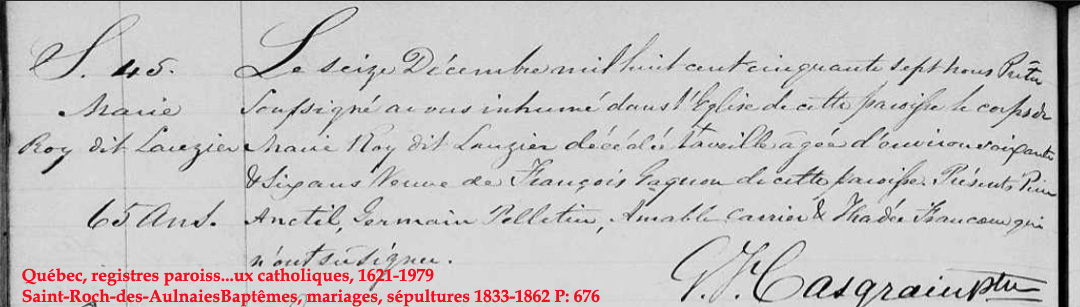 S. 45.
Marie
Roy dit Lauzier
65 Ans.
Le seize Décembre mil huit cent cinquante sept nous Prêtre
soussigné avons inhumé dans l'Eglise de cette paroisse le corps de
Marie Roy dit Lauzier décédée la veille agée d'environ soixante
& six ans Veuve de François Gagnon de cette paroisse. Présents Pierre
Anctil, Germain Pelletier, Amable Carrier & Thadée Francoeur qui
n'ont su signer.
G. Casgrain ptre
Québec, registres paroiss...ux catholiques, 1621-1979
Saint-Roch-des-AulnaiesBaptêmes, mariages, sépultures 1833-1862 P: 676